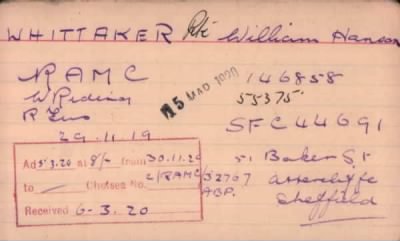 WHITTAKER Pte William Hanson
RAMC
W Riding
R Eus
29.11.19
15 MAR 1920
146858
55375
SFC44691
51 Baker St
Attercliffe
Sheffield
Ad 5.3.20 at 8/- from 30.11.20
to — Chelsea No. 2/RAMC/52767
ABP.
Received 6-3.20